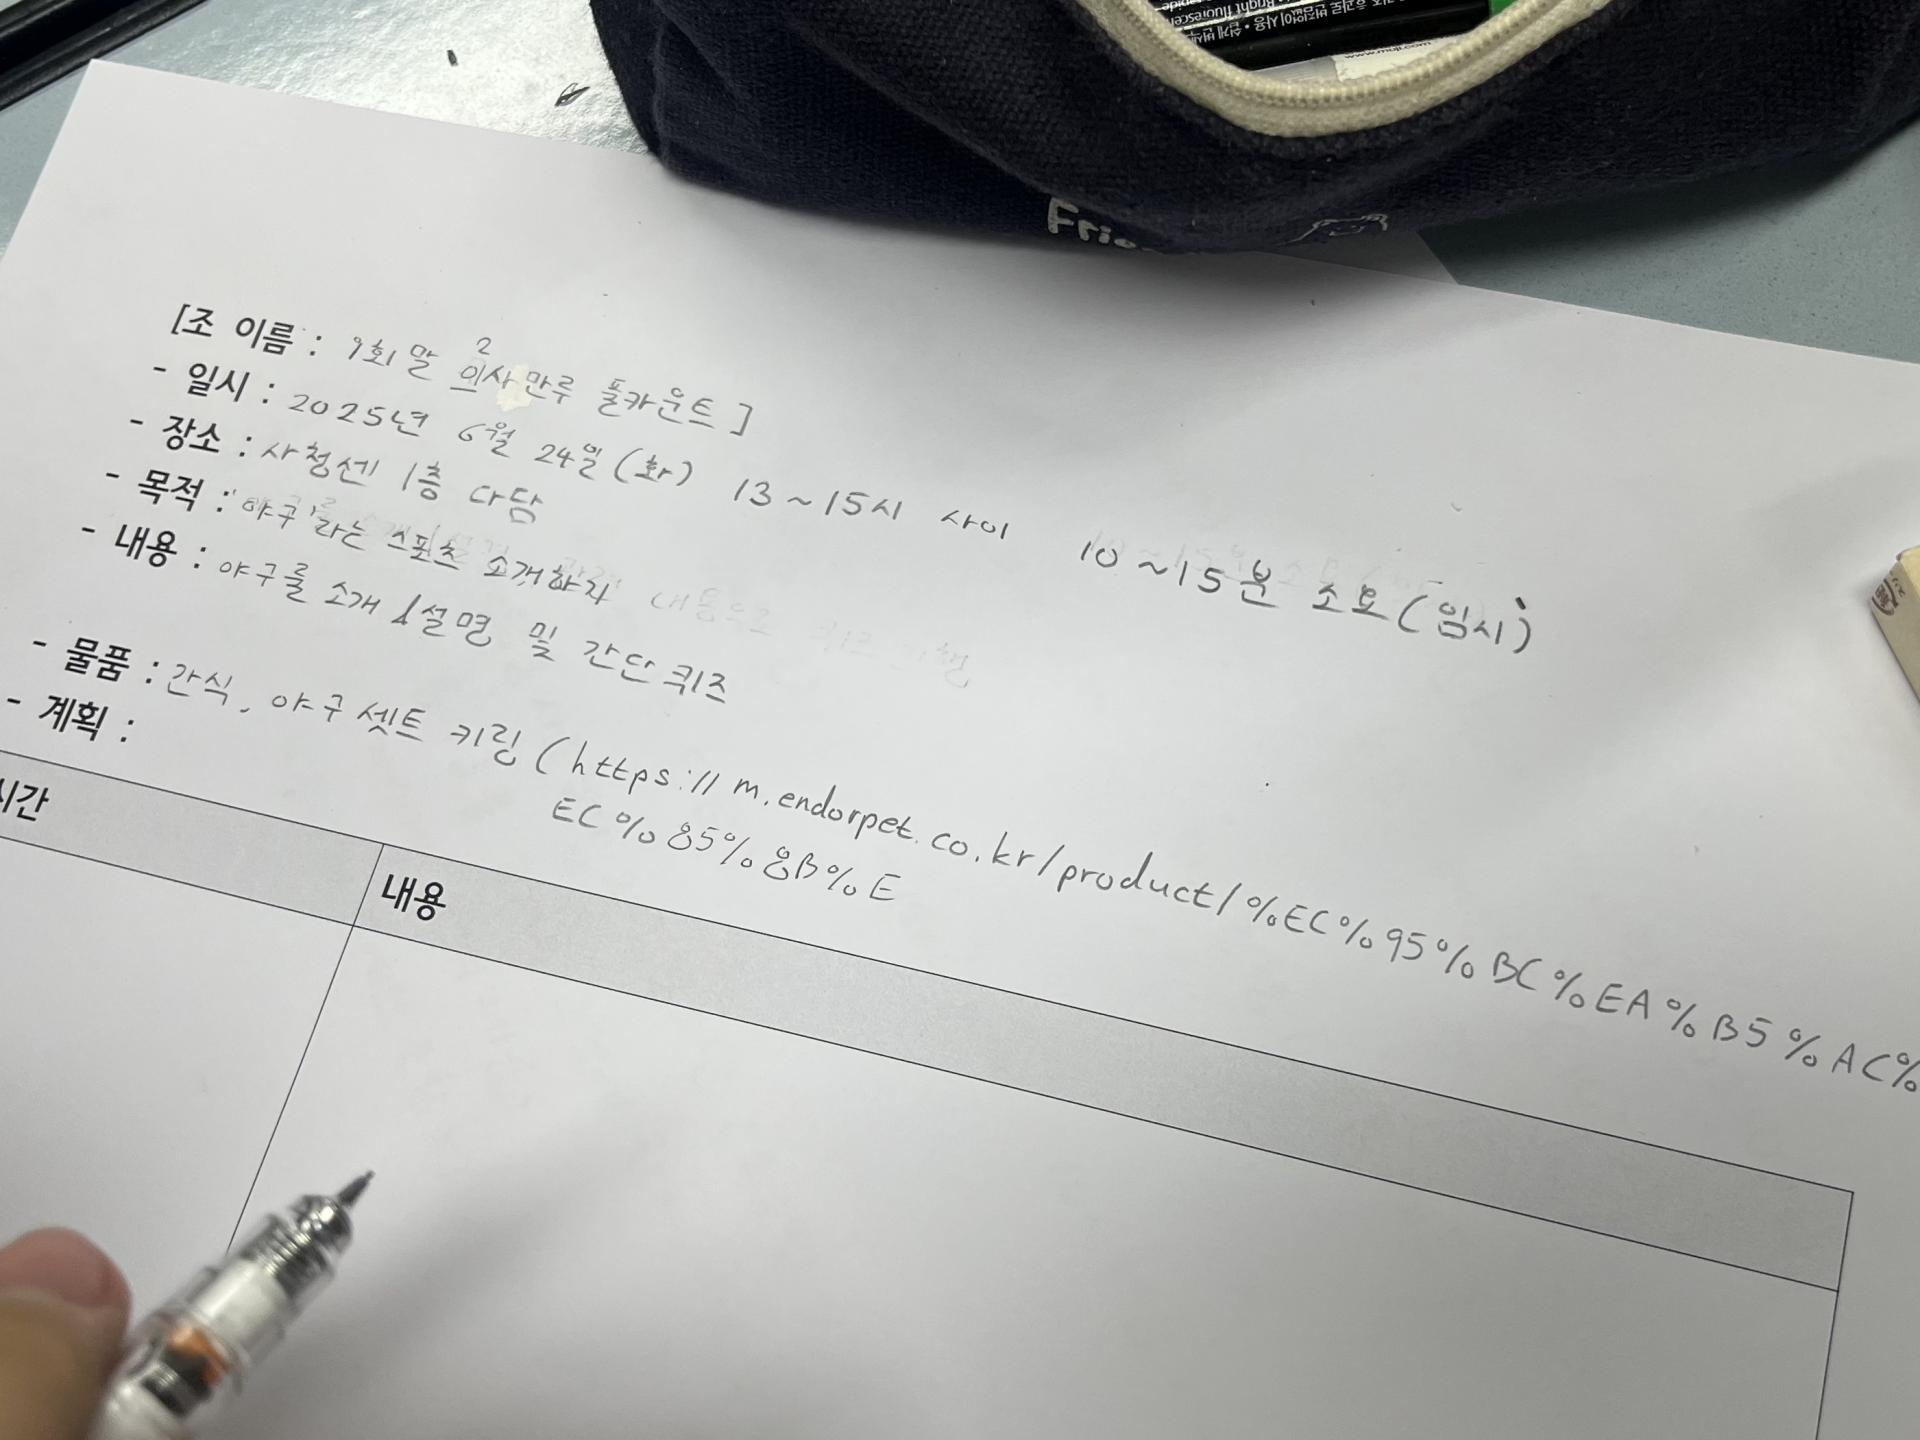 www.muji.com
Frie
[조 이름 : 9회말 2
의사만루 풀카운트 ]
- 일시 : 2025년 6월 24일 (화) 13~15시 사이 10~15분 소요(임시)
- 장소 : 사청센 1층 다담
- 목적 : '야구'라는 스포츠 소개하자
- 내용 : 야구를 소개 설명 및 간단 퀴즈
- 물품 : 간식, 야구 셋트 키링 (https://m.endorpet.co.kr/product/%EC%95%BC%EA%B5%AC%
EC%85%8B%E
- 계획 :
시간 내용